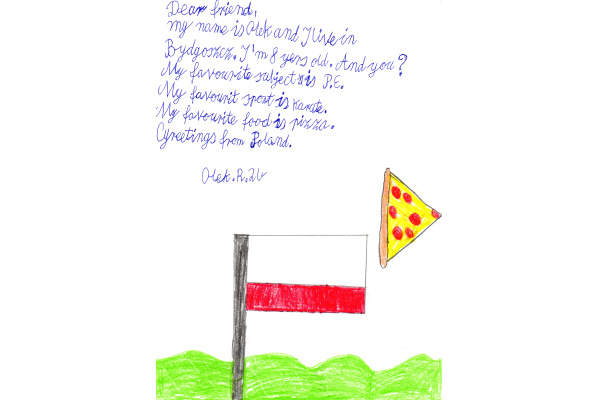 Dear friend,
my name is Olek and I live in
Bydgoszcz. I'm 8 yers old. And you?
My favourite subject is P.E.
My favourit sport is karate.
My favourite food is pizza.
Greetings from Poland.
Olek.R.2b